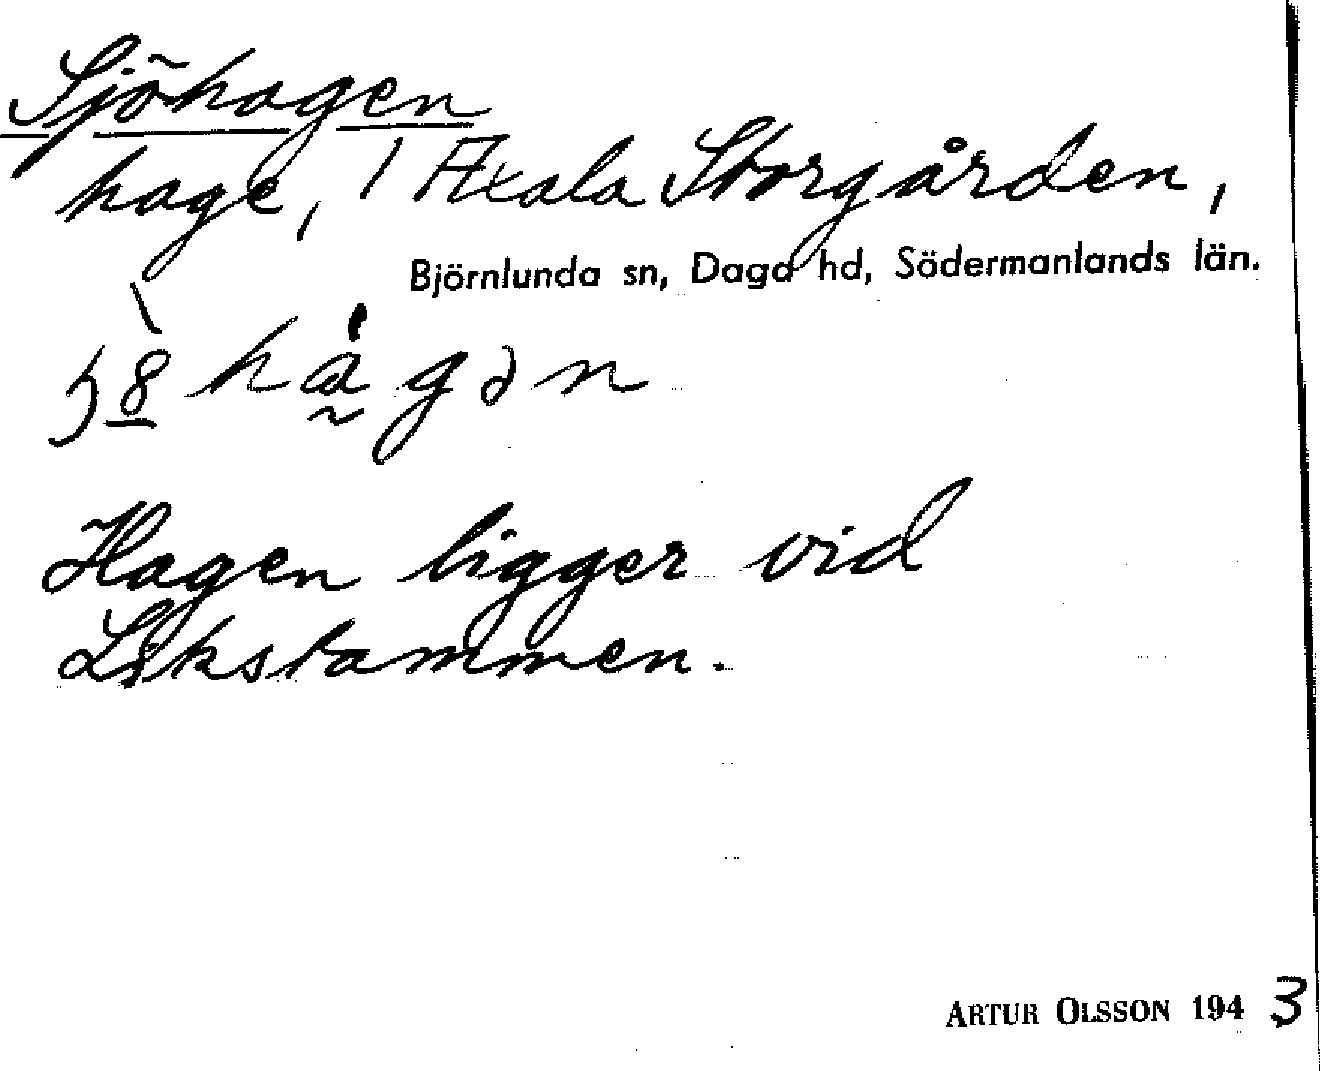 Sjöhagen
hage, 1 Axala Storgården,
Björnlunda sn, Daga hd, Södermanlands län.
hågən
Hagen ligger vid
Likstammen.
ARTUR OLSSON 1943